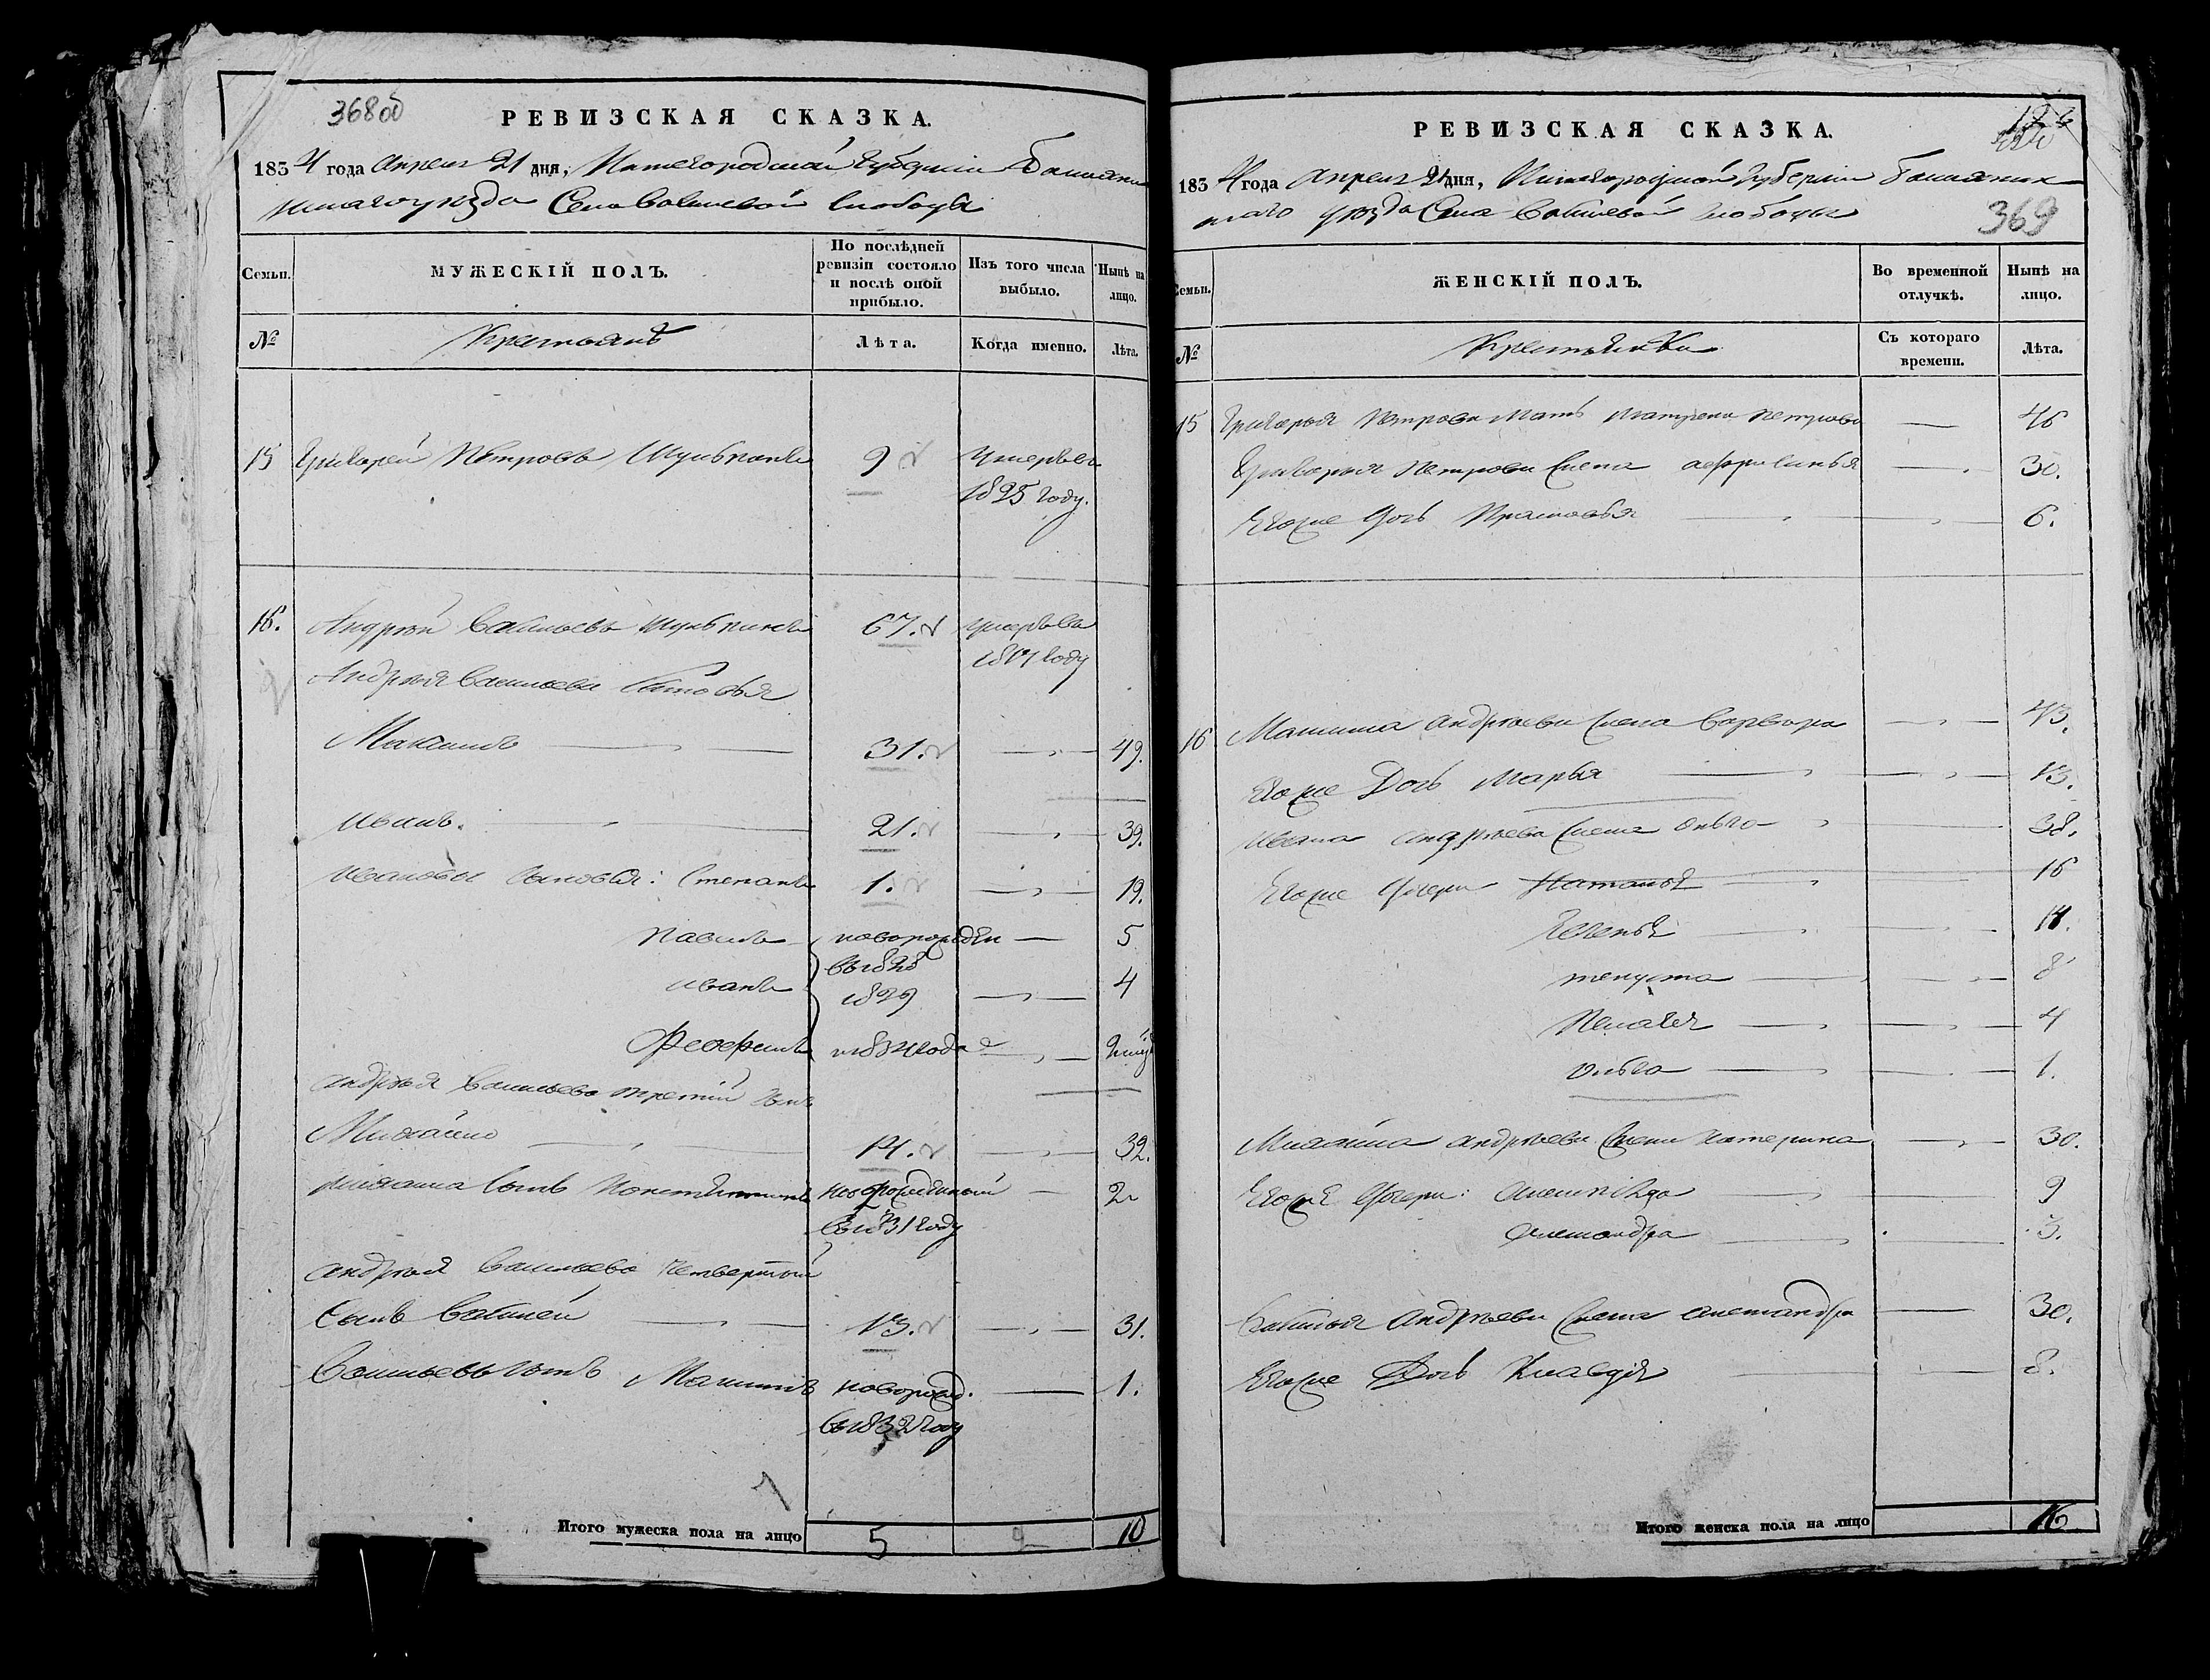 368об
РЕВИЗСКАЯ СКАЗКА.
1834 года Апреля 21 дня, Нижегородской Губернии Балахнин
скаго уезда Села Василевой Слободы
Семьи.
МУЖЕСКІЙ ПОЛЪ.
По послѣдней ревизіи состояло и послѣ оной прибыло.
Изъ того числа выбыло.
Нынѣ на лицо.
№
Крестьянъ
Лѣта.
Когда именно.
Лѣта.
15 Григорей Петровъ 9 Умерв
1825 году.
16. Андрей Васильевъ 67. умерв
Андрея Васильева Сыновья
Максимъ 31. 49.
Иванъ. 21. 39.
Ивановы Сыновья: Степанъ 1. 19.
Павилъ новорожден 5
въ 1828
иванъ 1829 4
Феофилъ 1834 года
андрея Васильева третий сынъ
Михайло 14. 32.
михаила Сынъ Новорожденный 2
въ 1831 году
андрея Васильева четвертый
Сынъ Василей 13. 31.
Васильевъ сынъ Максимъ новорожд. 1.
въ 1832 году
Итого мужеска пола на лицо 5 2 10
126
РЕВИЗСКАЯ СКАЗКА.
1834 года апреля 21 дня, Нижегородской Губернии Балахнин
скаго уезда Села Василевой слободы
369
Семьи.
ЖЕНСКІЙ ПОЛЪ.
Во временной отлучкѣ.
Нынѣ на лицо.
№
Крестьянки
Съ котораго времени.
Лѣта.
15 Григорья Петрова Мать Матрена петрова 46
Григорья Петрова Жена афросинья 30.
Егоже Дочь Прасковья 6.
16 Максима андреева Жена Варвара 43.
Егоже Дочь Марья 13.
Ивана андреева Жена Ольга 38.
Егоже Дочери Наталья 16
Евгенья 14.
8
Пелагея 4
ольга 1.
Михайла андреева Жена Катерина 30.
Егоже Дочери: 9
Александра 3.
Василья Андреева Жена александра 30.
Егоже Дочь Клавдия 8.
Итого женска пола на лицо 16